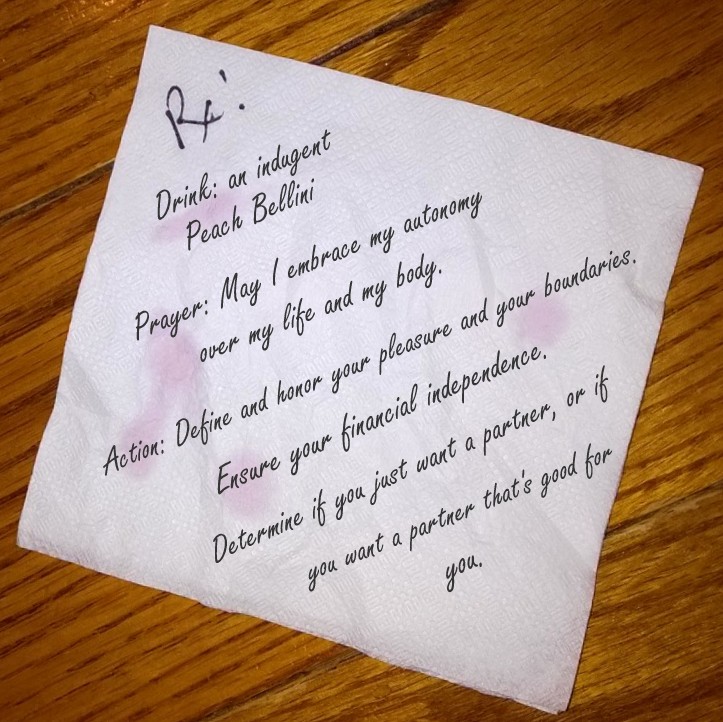 Rx:
Drink: an indugent
Peach Bellini
Prayer: May I embrace my autonomy
over my life and my body.
Action: Define and honor your pleasure and your boundaries.
Ensure your financial independence.
Determine if you just want a partner, or if
you want a partner that's good for
you.